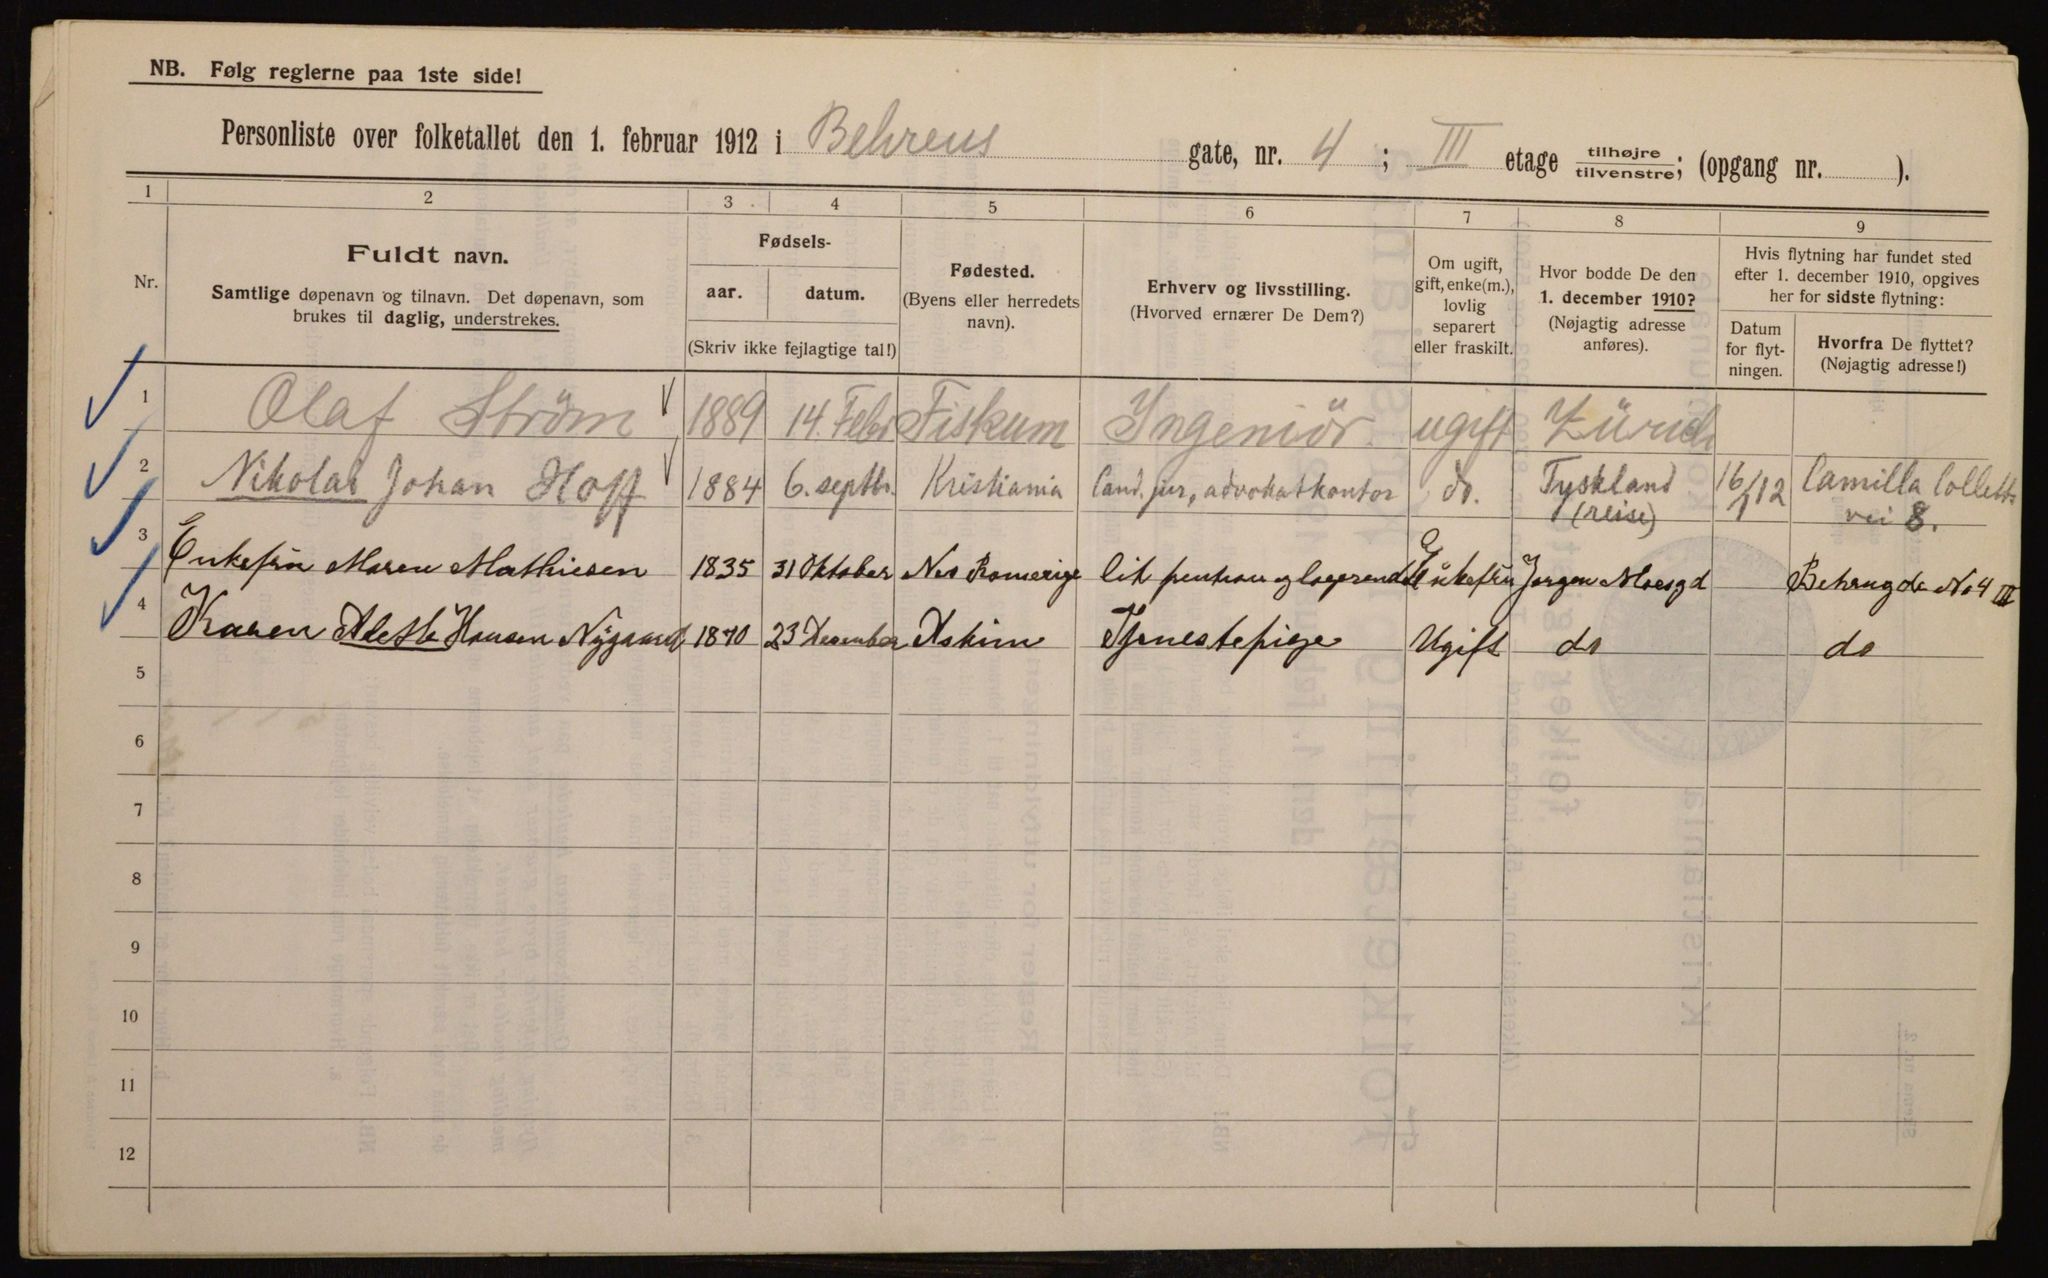 NB. Følg reglerne paa 1ste side!
Personliste over folketallet den 1. februar 1912 i Behrens gate, nr. 4; III etage tilhøjre tilvenstre; (opgang nr. ).
1 2 3 4 5 6 7 8 9
Nr.
Fuldt navn.
Samtlige døpenavn og tilnavn. Det døpenavn, som
brukes til daglig, understrekes.
Fødsels-
aar. datum.
(Skriv ikke fejlagtige tal!)
Fødested.
(Byens eller herredets
navn).
Erhverv og livsstilling.
(Hvorved ernærer De Dem?)
Om ugift,
gift, enke(m.),
lovlig
separert
eller fraskilt.
Hvor bodde De den
1. december 1910?
(Nøjagtig adresse
anføres).
Hvis flytning har fundet sted
efter 1. december 1910, opgives
her for sidste flytning:
Datum
for flyt-
ningen.
Hvorfra De flyttet?
(Nøjagtig adresse!)
1 Olaf Ström 1889 14. Febr Fiskum Ingeniör ugift Zürich
2 Nikolai Johan Hoff 1884 6. septbr. Kristiania Cand. jur, advokatkontor do. Tyskland (reise) 16/1 12 Camilla Colletts vei 8.
3 Enkefru Maren Mathiesen 1835 31 Oktober Nes Romerige lit pention og logerende Enkefru Jørgen Moesgd Behrngde No 4 III
4 Karen Alette Hansen Nygaard 1870 23 Desember Askim Tjenestepige Ugift do do
5
6
7
8
9
10
11
12